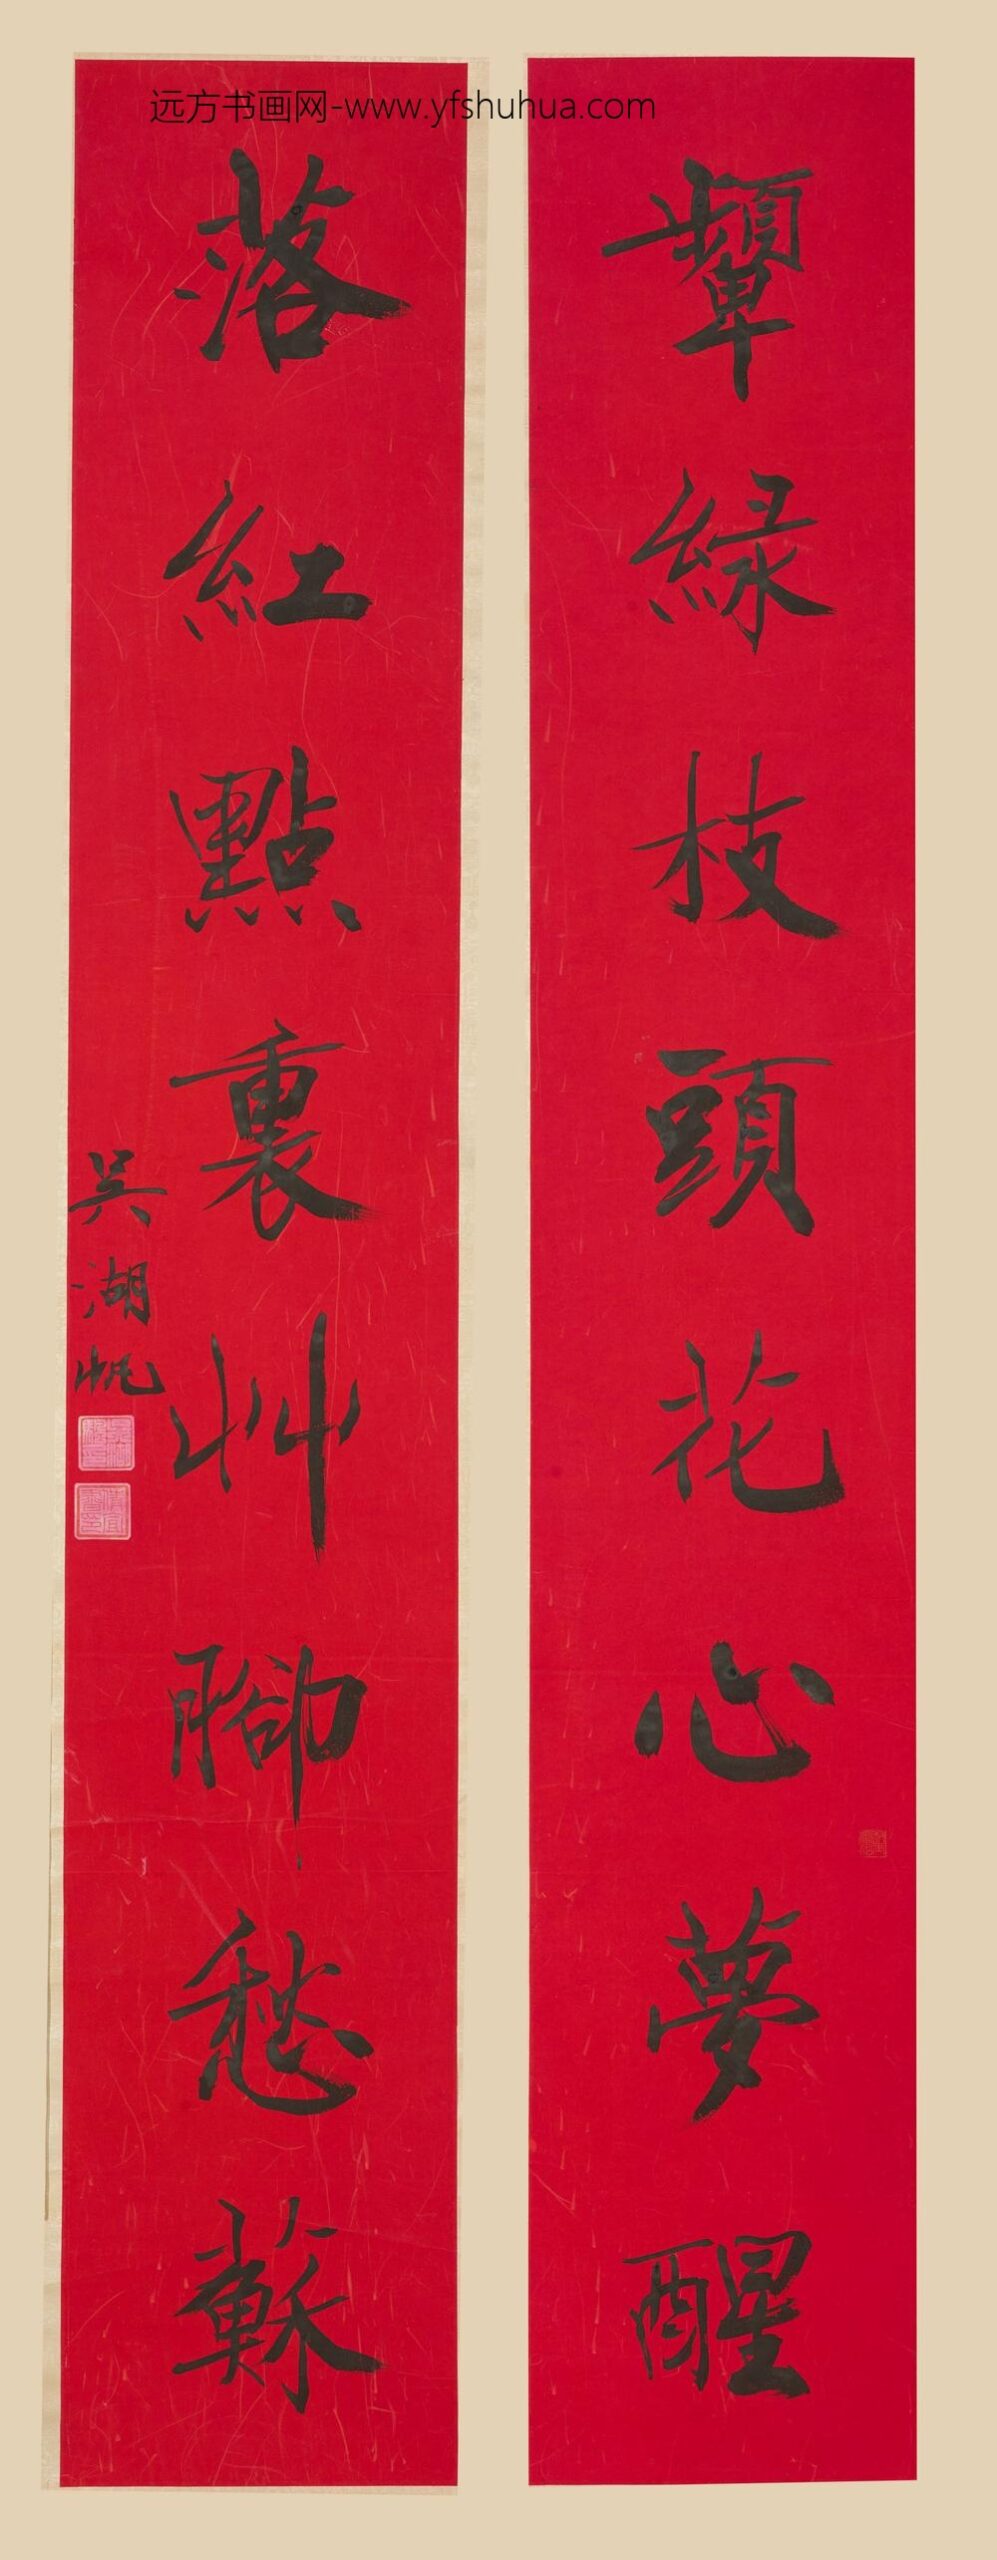 远方书画网-www.yfshuhua.com
颦綠枝頭花心夢醒
落紅點裏艸腳愁蘇
吳湖帆